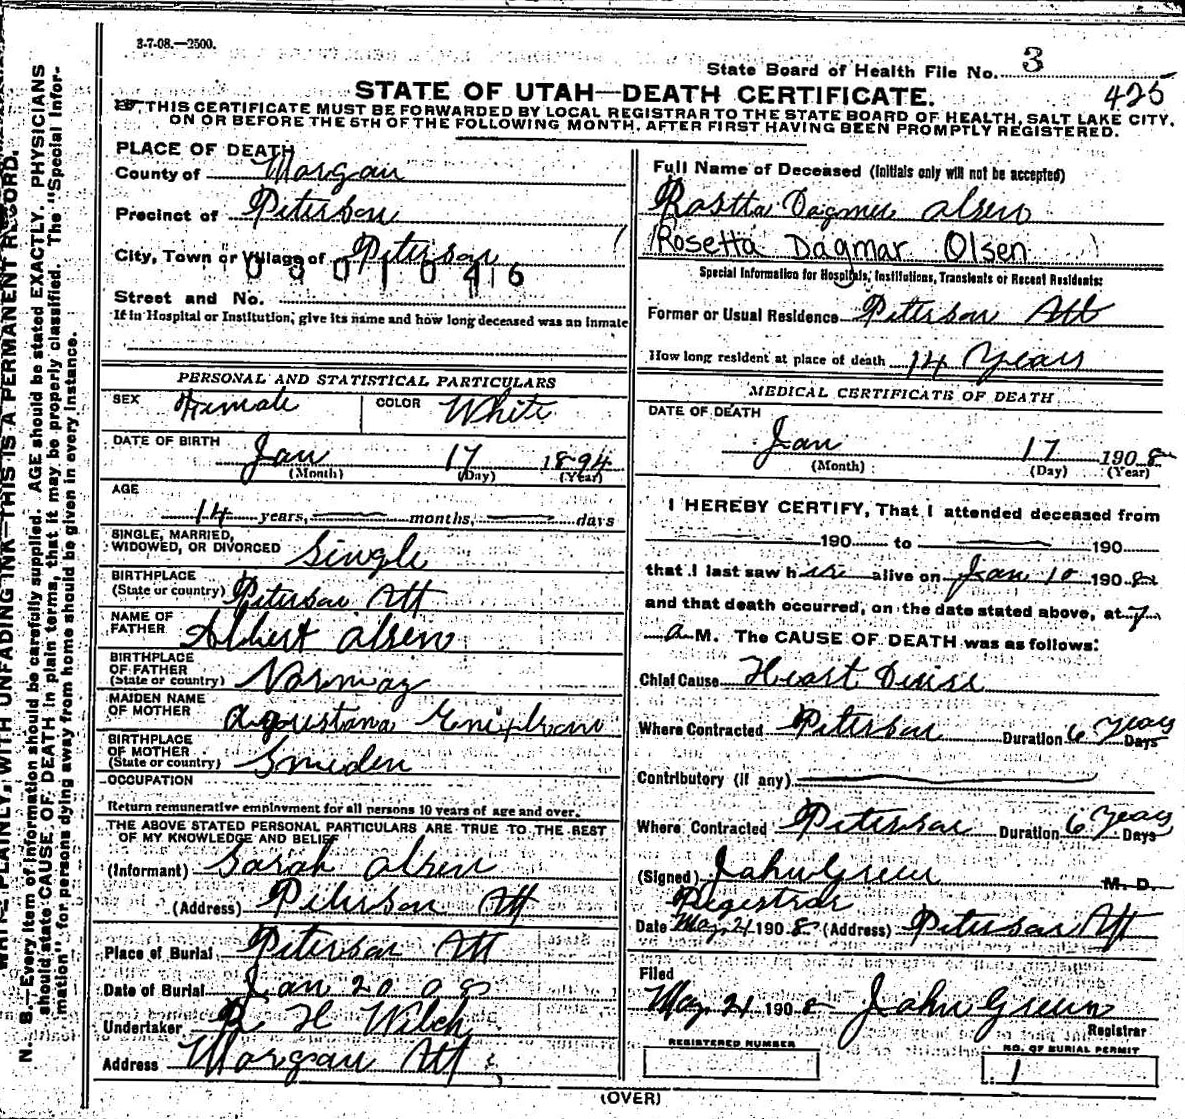 3-7-08.—2500.
State Board of Health File No. 3
426
STATE OF UTAH—DEATH CERTIFICATE.
THIS CERTIFICATE MUST BE FORWARDED BY LOCAL REGISTRAR TO THE STATE BOARD OF HEALTH, SALT LAKE CITY,
ON OR BEFORE THE 5TH OF THE FOLLOWING MONTH, AFTER FIRST HAVING BEEN PROMPTLY REGISTERED.
PLACE OF DEATH
County of Morgan
Precinct of Peterson
City, Town or Village of Peterson
0001046
Street and No.
If in Hospital or Institution, give its name and how long deceased was an inmate
Full Name of Deceased (Initials only will not be accepted)
Rosetta Dagmar Olsen
Special Information for Hospitals, Institutions, Transients or Recent Residents:
Former or Usual Residence Peterson
How long resident at place of death 14 Years
PERSONAL AND STATISTICAL PARTICULARS
SEX Female COLOR White
DATE OF BIRTH
Jan 17 1894
(Month) (Day) (Year)
AGE
14 years, months, days
SINGLE, MARRIED,
WIDOWED, OR DIVORCED Single
BIRTHPLACE
(State or country) Peterson
NAME OF
FATHER Albert Olsen
BIRTHPLACE
OF FATHER
(State or country) Norway
MAIDEN NAME
OF MOTHER
BIRTHPLACE
OF MOTHER
(State or country) Sweden
OCCUPATION
Return remunerative employment for all persons 10 years of age and over.
THE ABOVE STATED PERSONAL PARTICULARS ARE TRUE TO THE BEST
OF MY KNOWLEDGE AND BELIEF
(Informant) Sarah Olsen
(Address) Peterson
Place of Burial Peterson
Date of Burial Jan 20 08
Undertaker
Address Morgan
MEDICAL CERTIFICATE OF DEATH
DATE OF DEATH
Jan 17 1908
(Month) (Day) (Year)
I HEREBY CERTIFY, That I attended deceased from
190 to 190
that I last saw her alive on Jan 10 1908
and that death occurred, on the date stated above, at 7
a M. The CAUSE OF DEATH was as follows:
Chief Cause Heart
Where Contracted Peterson Duration 6 years Days
Contributory (if any)
Where Contracted Peterson Duration 6 years Days
(Signed) John Green M. D.
Registrar
Date 21 1908 (Address) Peterson
Filed
21 1908 John Green
Registrar
REGISTERED NUMBER
NO. OF BURIAL PERMIT
1
(OVER)
WRITE PLAINLY, WITH UNFADING INK—THIS IS A PERMANENT RECORD.
N. B.—Every item of information should be carefully supplied. AGE should be stated EXACTLY. PHYSICIANS
should state CAUSE OF DEATH in plain terms, that it may be properly classified. The "Special Infor-
mation" for persons dying away from home should be given in every instance.